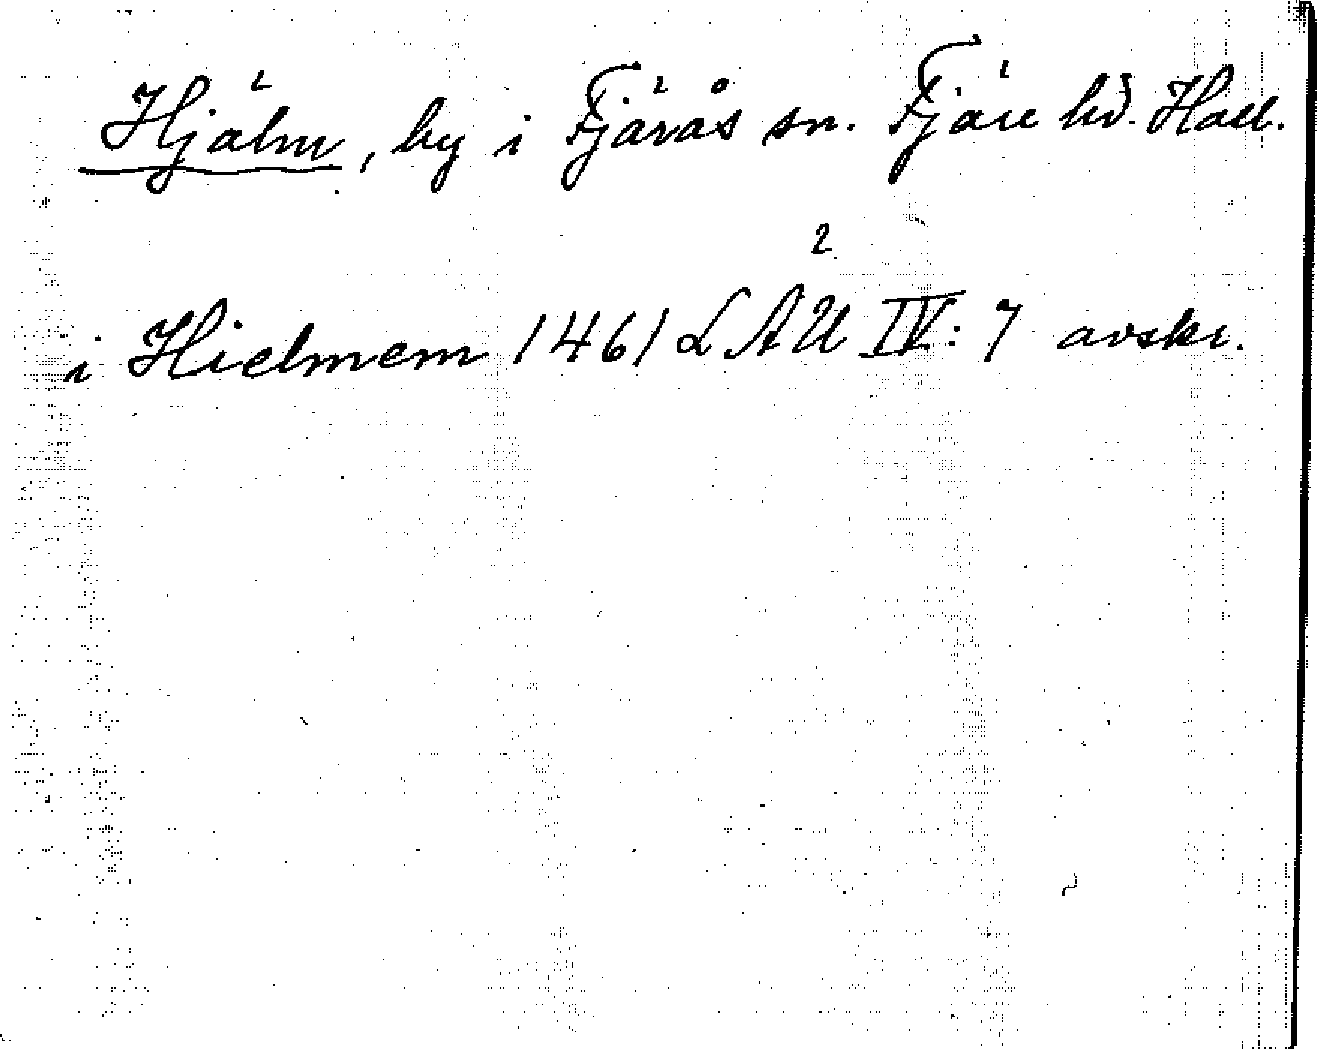 Hjälm, by i Fjärås sn. Fjäre hd. Hall.
2
i Hielmem 1461 LAU IV: 7 avskr.